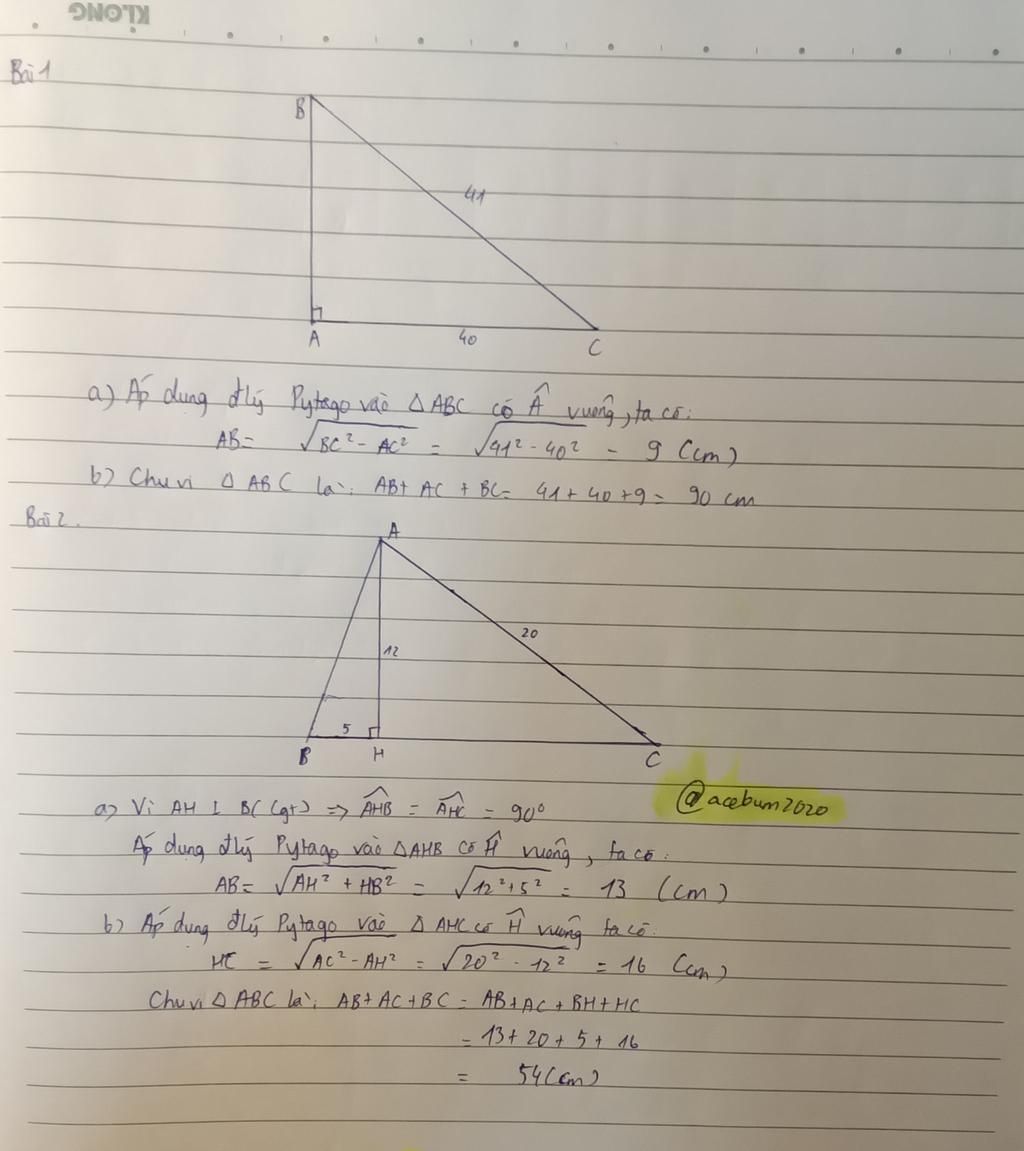 KLONG
Bài 1
B
41
A
40
C
a) Áp dụng đlý Pytago vào △ABC có Â vuông, ta có:
AB = √BC² - AC² = √41² - 40² = 9 (cm)
b) Chu vi △ABC là: AB + AC + BC = 41 + 40 + 9 = 90 cm
Bài 2.
A
20
12
5
B
H
C
@acebum2020
a) Vì AH ⊥ BC (gt) => AHB̂ = AHĈ = 90°
Áp dụng đlý Pytago vào △AHB có Ĥ vuông, ta có:
AB = √AH² + HB² = √12² + 5² = 13 (cm)
b) Áp dụng đlý Pytago vào △AHC có Ĥ vuông ta có:
HC = √AC² - AH² = √20² - 12² = 16 (cm)
Chu vi △ABC là: AB + AC + BC = AB + AC + BH + HC
= 13 + 20 + 5 + 16
= 54 (cm)